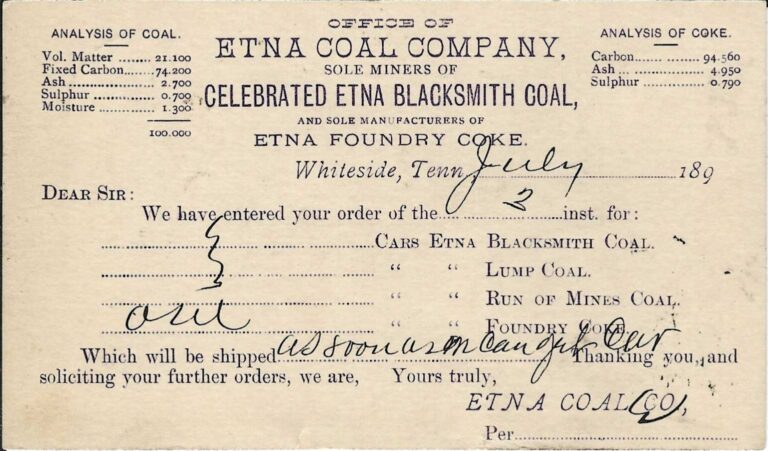 OFFICE OF
ETNA COAL COMPANY,
SOLE MINERS OF
CELEBRATED ETNA BLACKSMITH COAL,
AND SOLE MANUFACTURERS OF
ETNA FOUNDRY COKE.
ANALYSIS OF COAL.
Vol. Matter ........ 21.100
Fixed Carbon....... 74.200
Ash ................... 2.700
Sulphur .............. 0.700
Moisture ............ 1.300
100.000
ANALYSIS OF COKE.
Carbon............ 94.560
Ash ................ 4.950
Sulphur .......... 0.790
Whiteside, Tenn July 189
DEAR SIR:
We have entered your order of the 2 inst. for:
CARS ETNA BLACKSMITH COAL.
“ “ LUMP COAL.
“ “ RUN OF MINES COAL.
one “ “ FOUNDRY COKE
Which will be shipped as soon as can get Car Thanking you, and
soliciting your further orders, we are, Yours truly,
ETNA COAL CO,
Per